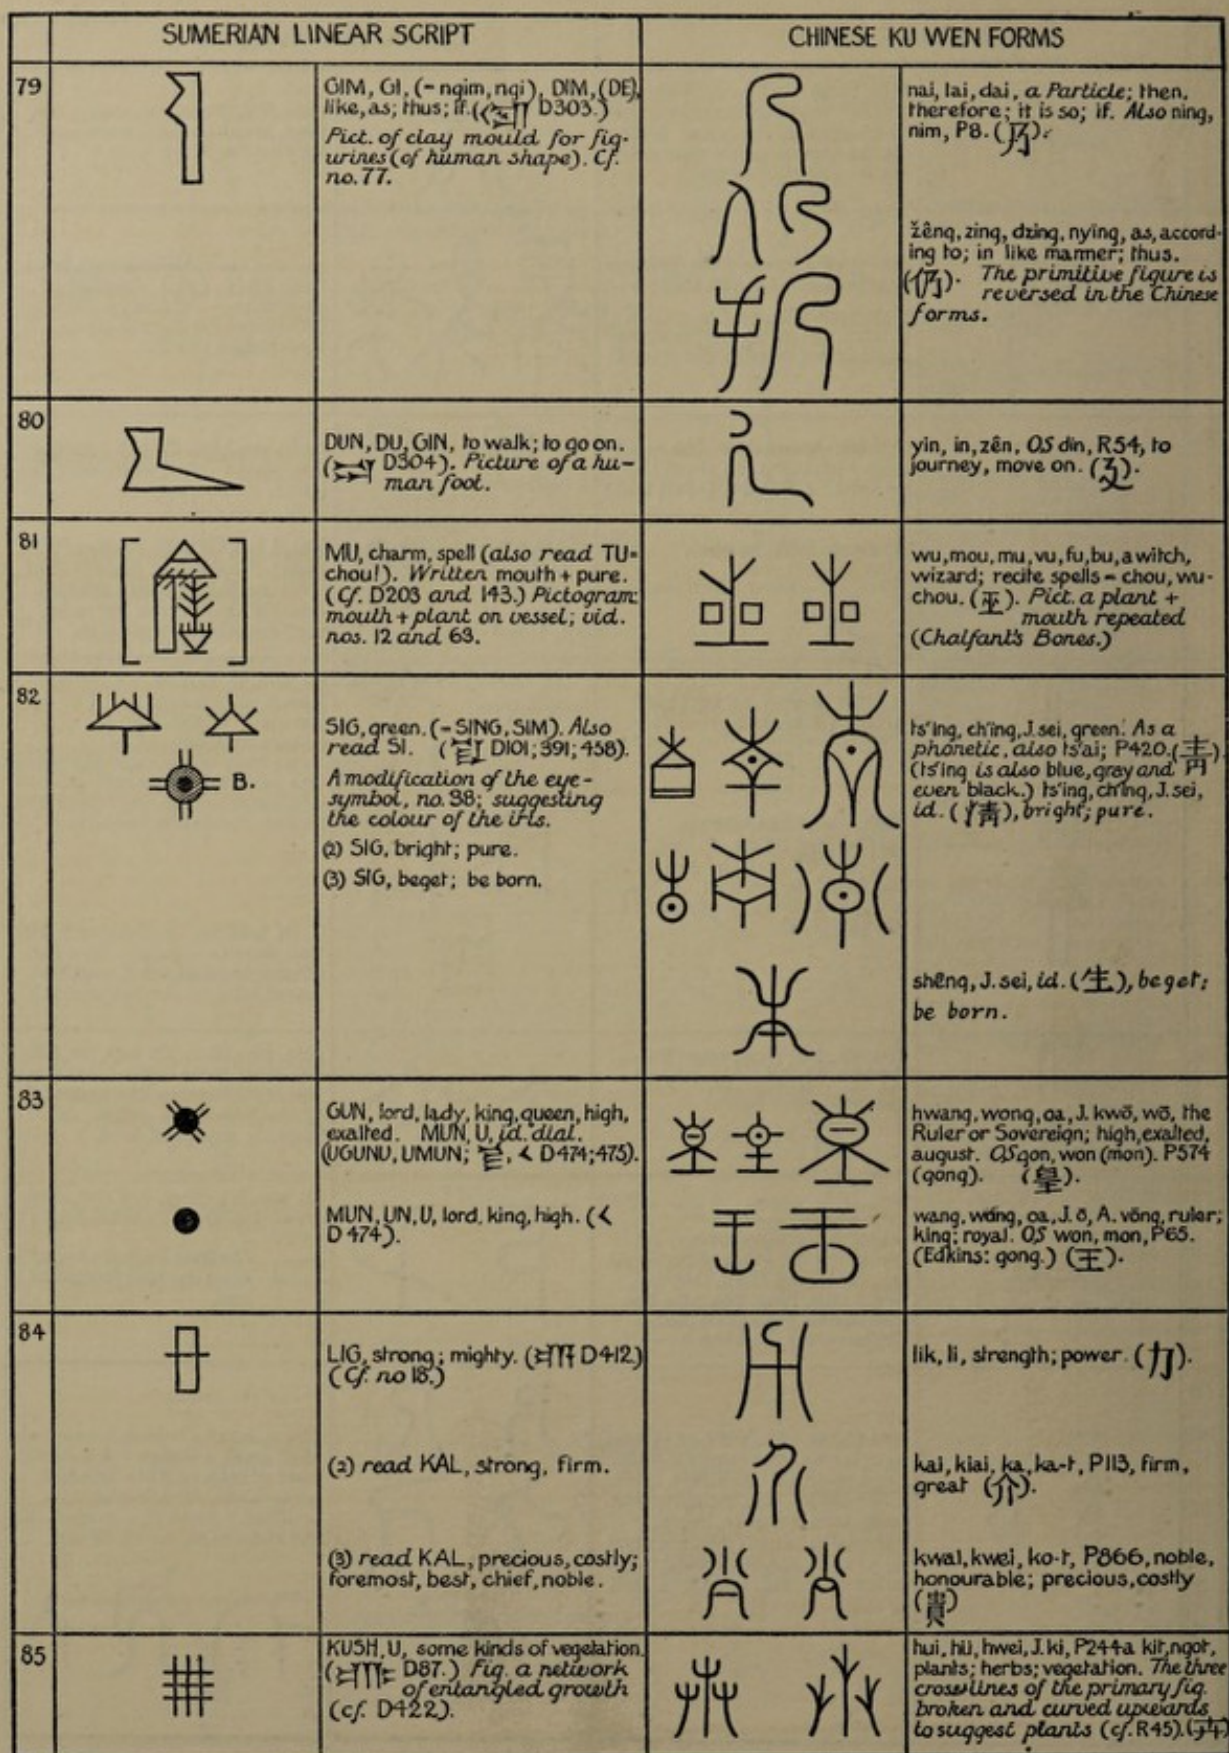 SUMERIAN LINEAR SCRIPT
CHINESE KU WEN FORMS
79
GIM, GI, (= ngim, ngi), DIM, (DE),
like, as; thus; if. ( D303.)
Pict. of clay mould for fig-
urines (of human shape). Cf.
no. 77.
nai, lai, dai, a Particle; then,
therefore; it is so; if. Also ning,
nim, P8. (乃).
žêng, zing, dzing, nying, as, accord-
ing to; in like manner; thus.
(仍). The primitive figure is
reversed in the Chinese
forms.
80
DUN, DU, GIN, to walk; to go on.
( D304). Picture of a hu-
man foot.
yin, in, zên, OS din, R54, to
journey, move on. (廴).
81
MU, charm, spell (also read TU=
chou!). Written mouth + pure.
(Cf. D203 and 143.) Pictogram:
mouth + plant on vessel; vid.
nos. 12 and 63.
wu, mou, mu, vu, fu, bu, a witch,
wizard; recite spells = chou, wu-
chou. (巫). Pict. a plant +
mouth repeated
(Chalfant's Bones.)
82
B.
SIG, green. (= SING, SIM). Also
read SI. ( D101; 391; 458).
A modification of the eye-
symbol, no. 38; suggesting
the colour of the iris.
(2) SIG, bright; pure.
(3) SIG, beget; be born.
ts'ing, ch'ing, J. sei, green. As a
phonetic, also ts'ai; P420. (靑)
(ts'ing is also blue, gray and
even black.) ts'ing, ch'ing, J. sei,
id. ( ), bright; pure.
shêng, J. sei, id. (生), beget;
be born.
83
GUN, lord, lady, king, queen, high,
exalted. MUN, U, id. dial.
(UGUNU, UMUN; , D474; 475).
MUN, UN, U, lord, king, high. (
D474).
hwang, wong, oa, J. kwō, wō, the
Ruler or Sovereign; high, exalted,
august. OS gon, won (mon). P574
(gong). (皇).
wang, wong, oa, J. ō, A. vōng, ruler;
king; royal. OS won, mon, P65.
(Edkins: gong.) (王).
84
LIG, strong; mighty. ( D412)
(Cf. no 18.)
lik, li, strength; power. (力).
(2) read KAL, strong, firm.
kai, kiai, ka, ka-t, P113, firm,
great (介).
(3) read KAL, precious, costly;
foremost, best, chief, noble.
kwai, kwei, ko-t, P866, noble,
honourable; precious, costly
(貴)
85
KUSH, U, some kinds of vegetation.
( D87.) Fig. a network
of entangled growth
(cf. D422).
hui, hü, hwei, J. ki, P244a kit, ngot,
plants; herbs; vegetation. The three
cross lines of the primary fig.
broken and curved upwards
to suggest plants (cf. R45). (卉)